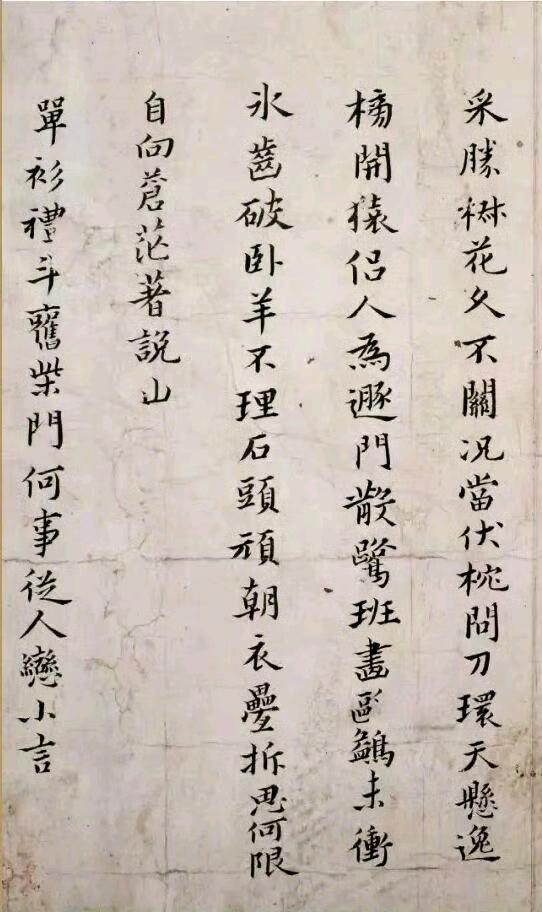 采勝花久不關況當伏枕問刀環天懸逸
橘開猿侶人為遯門散鷺班畫歐鷁未衝
氷齒破卧羊不理石頭頑朝衣疊拆思何限
自向蒼茫著說山
單衫禮斗舊柴門何事從人戀小言